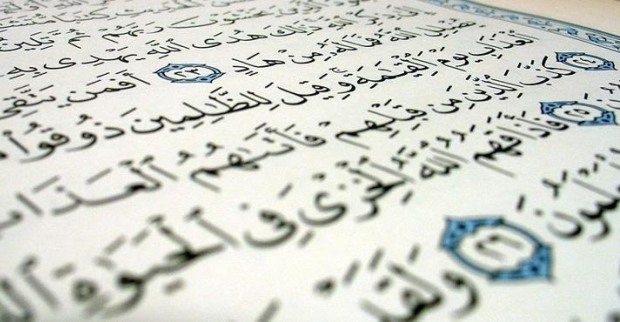 رَبِّهِمْ ثُمَّ تَلِينُ
ذَٰلِكَ هُدَى ٱللَّهِ يَهْدِى بِهِۦ
يُضْلِلِ ٱللَّهُ فَمَا لَهُۥ مِنْ هَادٍ ٢٣ أَفَمَن يَتَّقِى
ٱلْعَذَابِ يَوْمَ ٱلْقِيَٰمَةِ وَقِيلَ لِلظَّٰلِمِينَ ذُوقُوا۟
٢٤ كَذَّبَ ٱلَّذِينَ مِن قَبْلِهِمْ فَأَتَىٰهُمُ ٱلْعَذَابُ
٢٥ فَأَذَاقَهُمُ ٱللَّهُ ٱلْخِزْىَ فِى ٱلْحَيَوٰةِ
يَعْلَمُونَ ٢٦ وَلَقَدْ